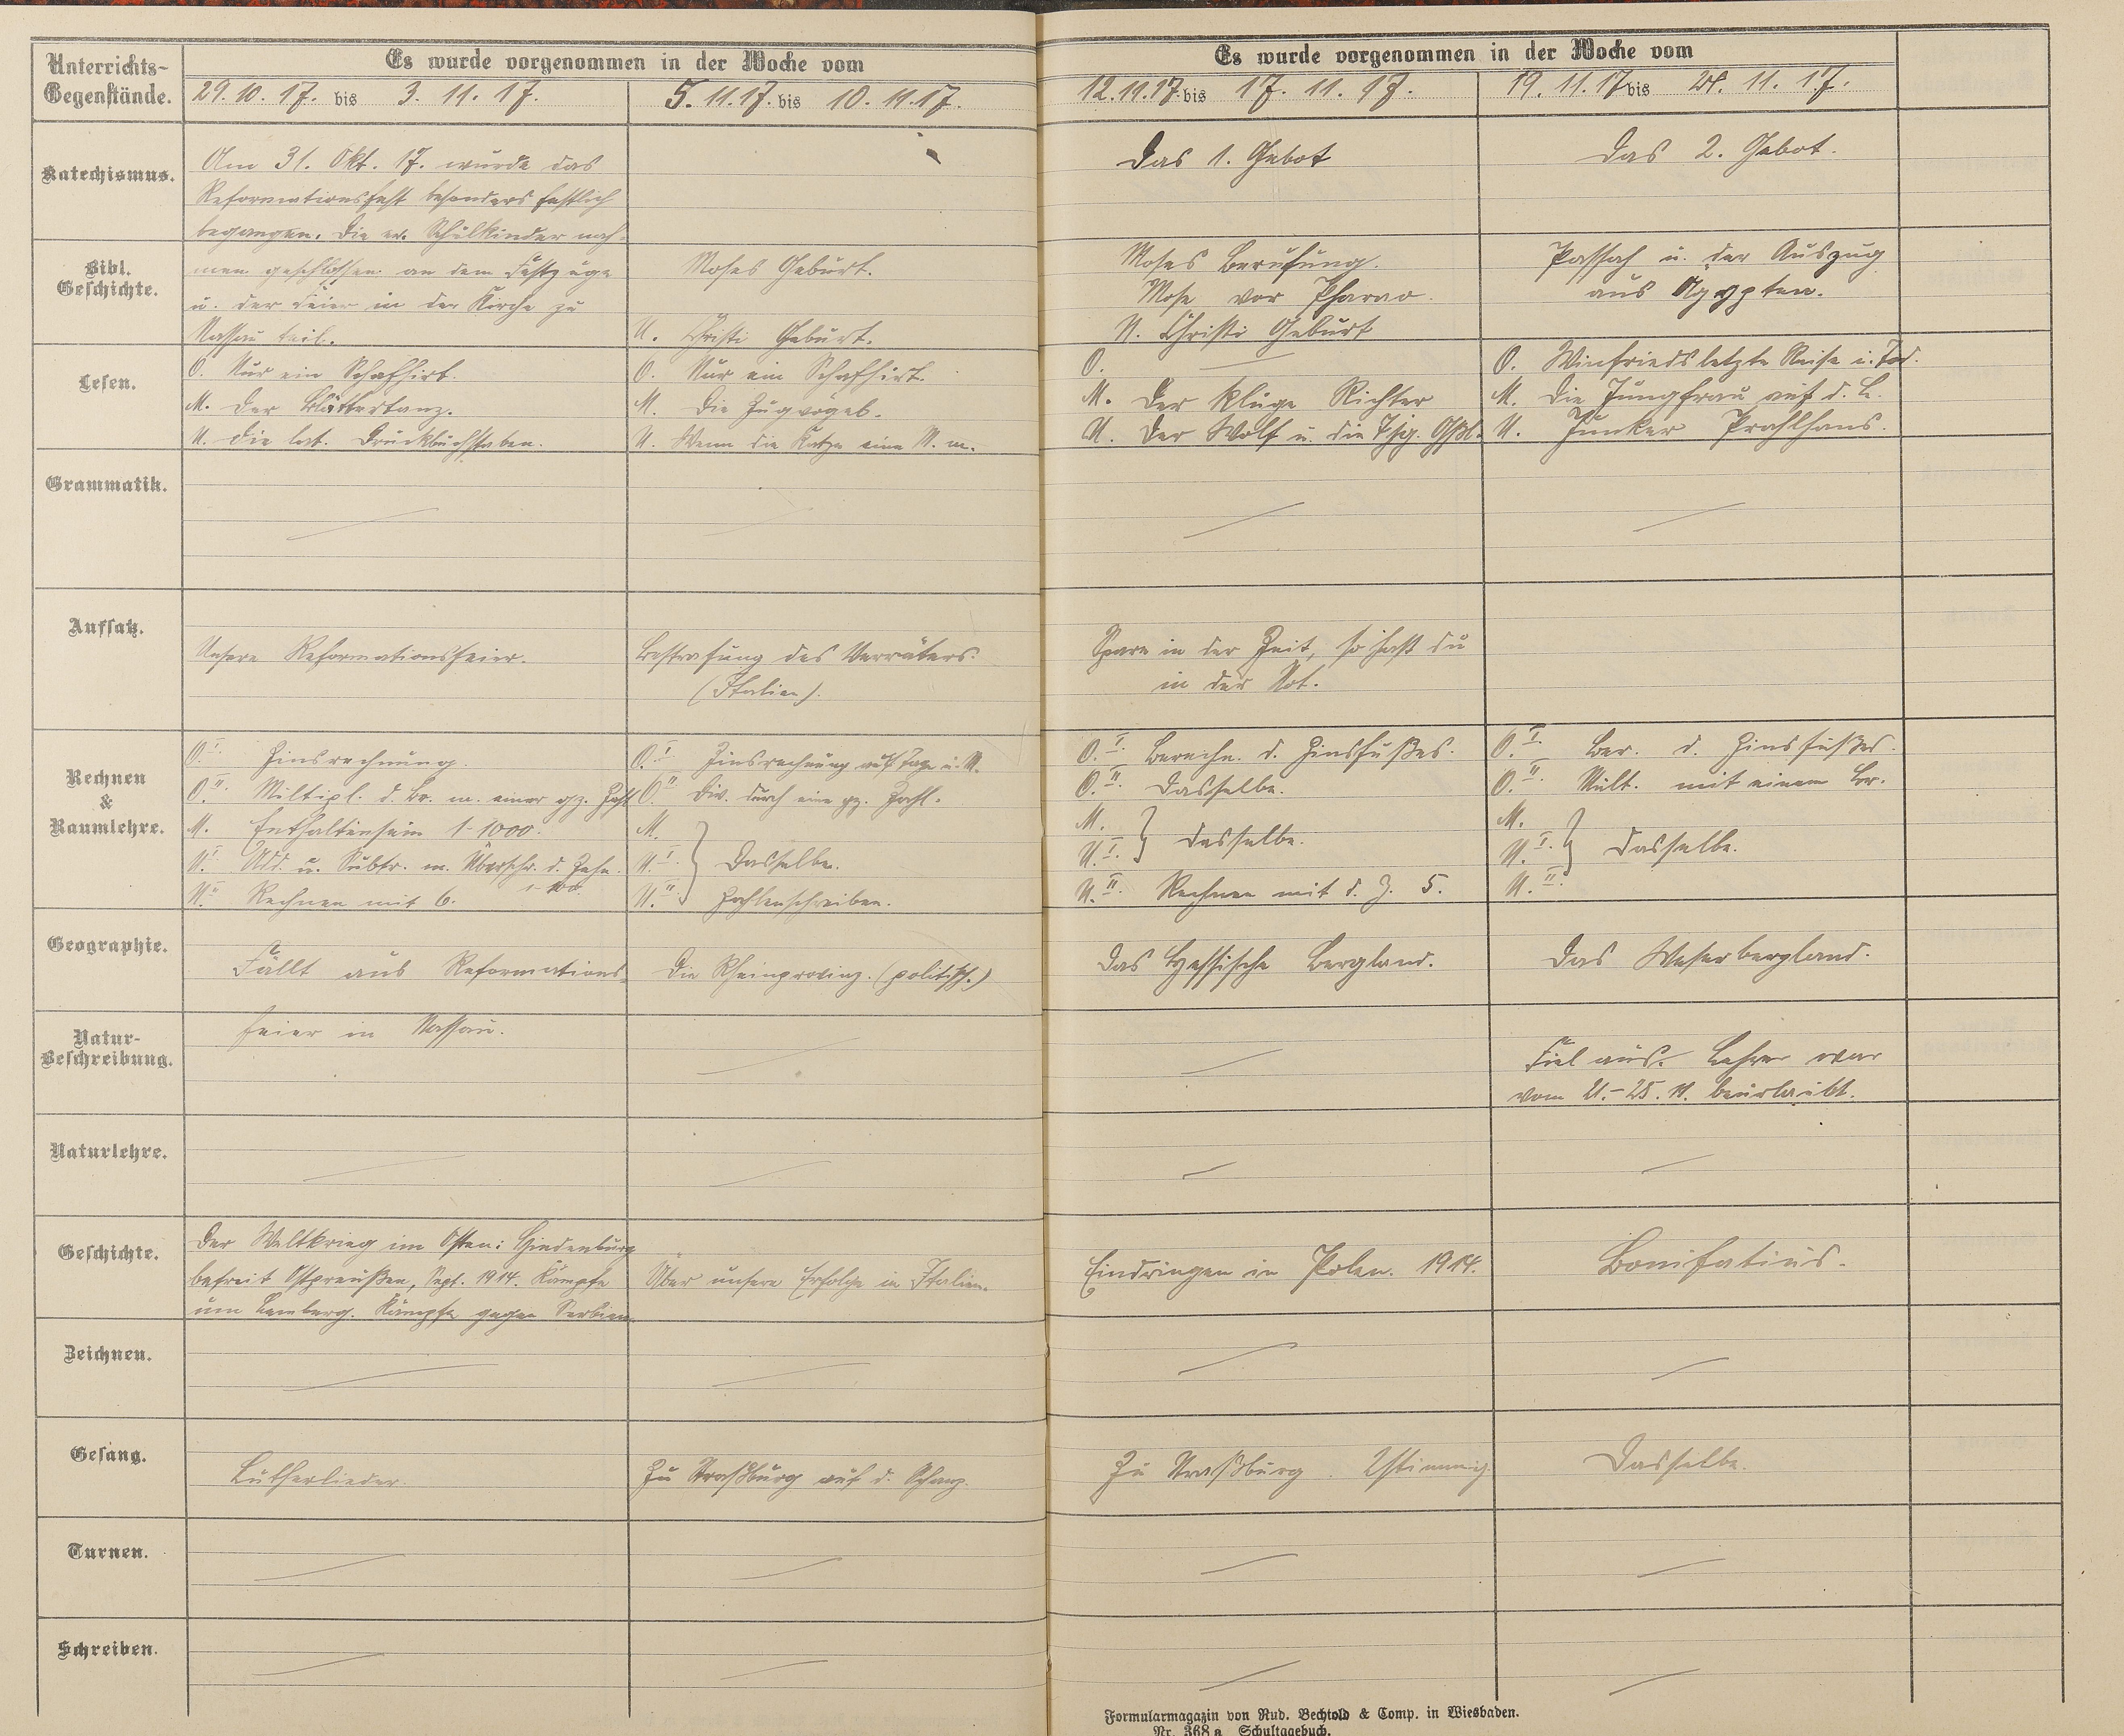 Unterrichts-
Gegenstände.
Es wurde vorgenommen in der Woche vom
Es wurde vorgenommen in der Woche vom
29. 10. 17. bis 3. 11. 17.
5. 11. 17. bis 10. 11. 17.
12. 11. 17. bis 17. 11. 17.
19. 11. 17 bis 24. 11. 17.
Katechismus.
Am 31. Okt. 17. wurde das
Reformationsfest besonders festlich
begangen. Die ev. Schulkinder nah-
Das 1. Gebot
Das 2. Gebot.
Bibl.
Geschichte.
men geschlossen an dem Festzuge
u. der Feier in der Kirche zu
Nassau teil.
Moses Geburt.
U. Christi Geburt.
Moses Berufung.
Mose vor Pharao.
U. Christi Geburt
Passah u. der Auszug
aus Ägypten.
Lesen.
O. Nur ein Schafhirt.
M. Der Blättertanz.
U. Die lat. Druckbuchstaben.
O. Nur ein Schafhirt.
M. Die Zugvögel.
U. Wenn die Katze eine M. m.
O. —
M. Der kluge Richter
U. Der Wolf u. die
O. Winfrieds letzte Reise u. Tod.
M. Die Jungfrau auf d. L.
U. Junker Prahlhans.
Grammatik.
—
—
—
—
Aufsatz.
Unsere Reformationsfeier.
Bestrafung des Verräters.
(Italien).
Spare in der Zeit, so hast du
in der Not.
Rechnen
&
Raumlehre.
O. I. Zinsrechnung.
O. II. Multipl. d. Br. m. einer gz. Zahl
M. Enthaltensein 1-1000.
U. I. Add. u. Subtr. m. Überschr. d. Zehn.
1-100.
U. II. Rechnen mit 6.
O. I. Zinsrechnung auf Tage u. M.
O. II. Div. durch eine gz. Zahl.
M.
U. I. } Dasselbe.
U. II. Zahlenschreiben.
O. I. Berechn. d. Zinsfußes.
O. II. Dasselbe.
M.
U. I. } Dasselbe.
U. II. Rechnen mit d. Z. 5.
O. I. Ber. d. Zinsfußes.
O. II. Mult. mit einem Br.
M.
U. I. } Dasselbe.
U. II.
Geographie.
Fällt aus Reformations-
Die Rheinprovinz. (politisch.)
Das Hessische Bergland.
Das Weserbergland.
Natur-
Beschreibung.
feier in Nassau.
—
—
Fiel aus. Lehrer war
vom 21.-25. 11. beurlaubt.
Naturlehre.
—
—
—
—
Geschichte.
Der Weltkrieg im Osten: Hindenburg
befreit Ostpreußen, Sept. 1914. Kämpfe
um Lemberg. Kämpfe gegen Serbien.
Über unsere Erfolge in Italien.
Eindringen in Polen. 1914.
Bonifatius.
Zeichnen.
—
—
—
—
Gesang.
Lutherlieder.
Zu Straßburg auf d. Schanz.
Zu Straßburg. 2stimmig.
Dasselbe.
Turnen.
—
—
—
—
Schreiben.
—
—
—
—
Formularmagazin von Rud. Bechtold & Comp. in Wiesbaden.
Nr. 368 a Schultagebuch.